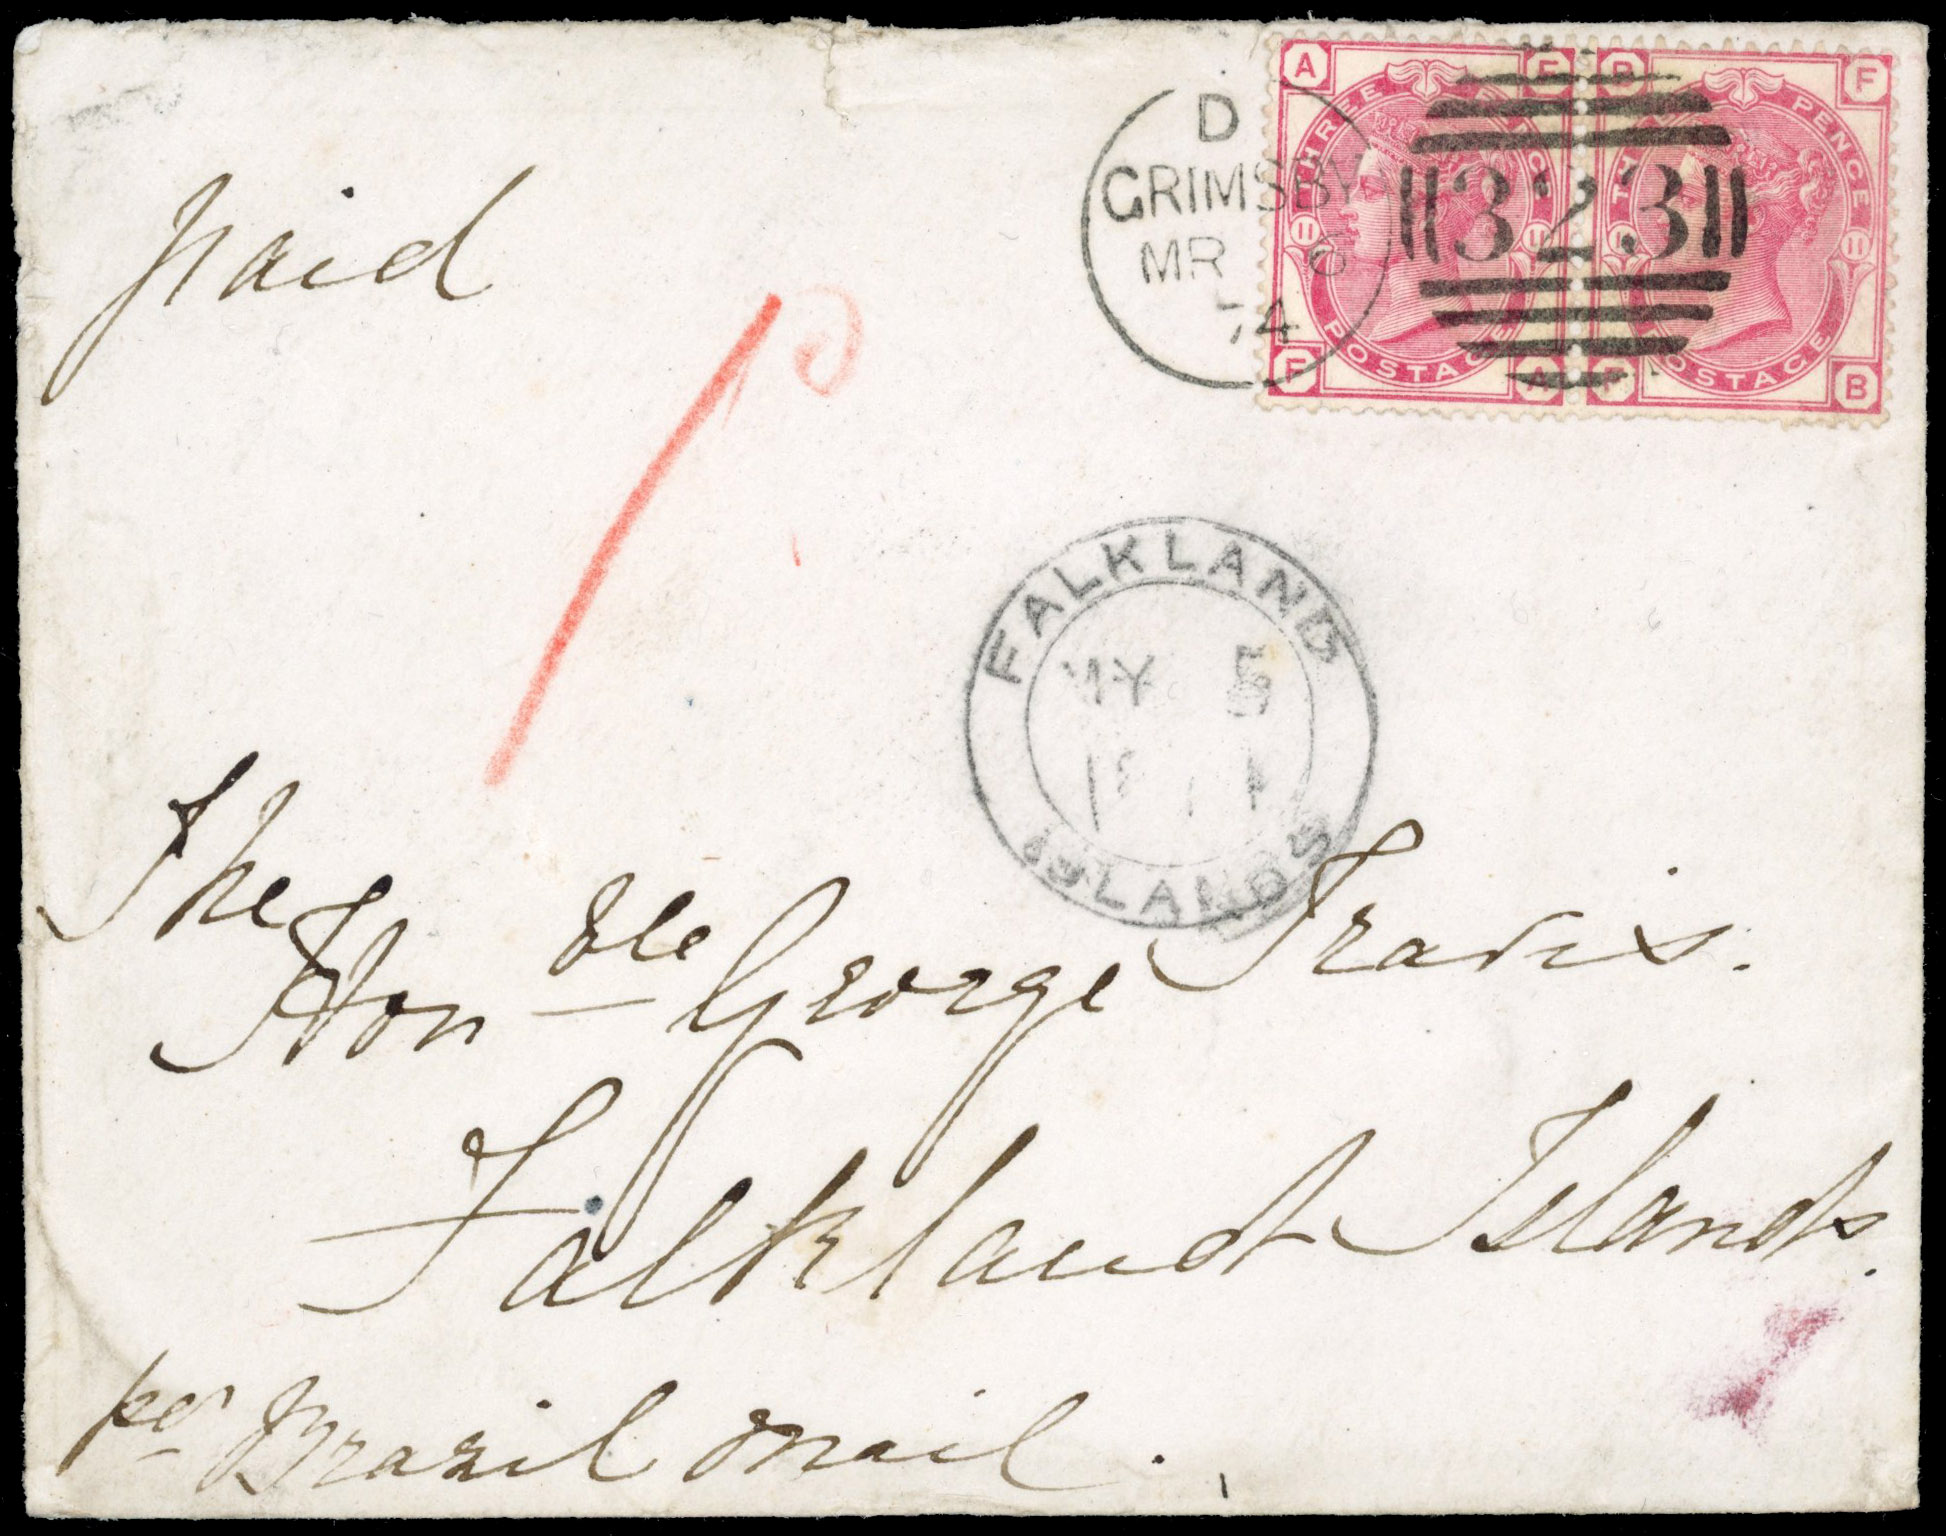 A E
THREE PENCE
11 11
POSTAGE
F A
B F
THREE PENCE
11 11
POSTAGE
F B
D
GRIMSBY
MR 6
74
323
paid
1
FALKLAND
MY 5
ISLANDS
The
Honble George Travis.
Falkland Islands.
per Brazil Mail.